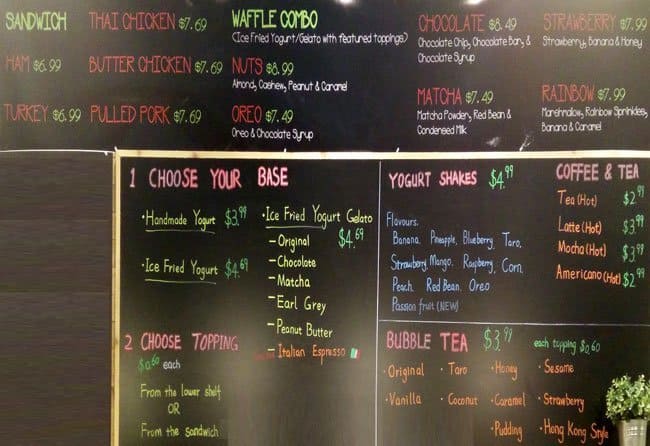 SANDWICH
HAM $6.99
TURKEY $6.99
THAI CHICKEN $7.69
BUTTER CHICKEN $7.69
PULLED PORK $7.69
WAFFLE COMBO
(Ice Fried Yogurt/Gelato with featured toppings)
NUTS $8.99
Almond, Cashew, Peanut & Caramel
OREO $7.49
Oreo & Chocolate Syrup
CHOCOLATE $8.49
Chocolate Chip, Chocolate Bar, &
Chocolate Syrup
MATCHA $7.49
Matcha Powder, Red Bean &
Condensed Milk
STRAWBERRY $7.99
Strawberry, Banana & Honey
RAINBOW $7.99
Marshmallow, Rainbow Sprinkles,
Banana & Caramel
1 CHOOSE YOUR BASE
• Handmade Yogurt $3.99
• Ice Fried Yogurt $4.69
• Ice Fried Yogurt Gelato
$4.69
- Original
- Chocolate
- Matcha
- Earl Grey
- Peanut Butter
- Italian Espresso
2 CHOOSE TOPPING
$0.60 each
From the lower shelf
OR
From the sandwich
YOGURT SHAKES $4.99
Flavours.
Banana, Pineapple, Blueberry, Taro,
Strawberry, Mango, Raspberry, Corn,
Peach, Red Bean, Oreo
Passion fruit (NEW)
COFFEE & TEA
Tea (Hot) $2.99
Latte (Hot) $3.99
Mocha (Hot) $3.99
Americano (Hot) $2.99
BUBBLE TEA $3.99 each topping $0.60
• Original • Taro • Honey • Sesame
• Vanilla • Coconut • Caramel • Strawberry
• Pudding • Hong Kong Style